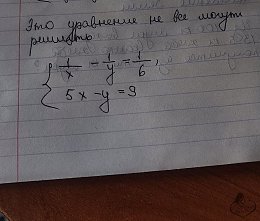 Это уравнение не все могут
решить
1/x - 1/y = 1/6
5x - y = 9